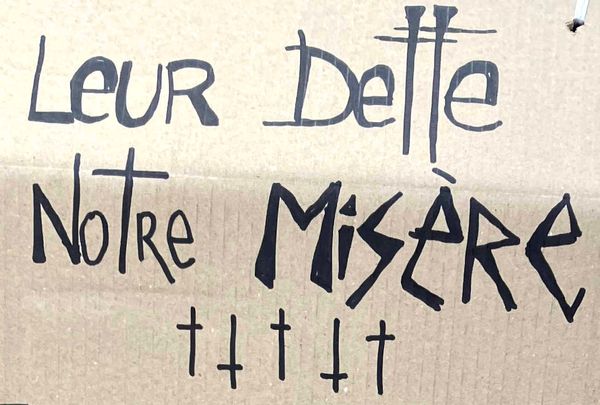 Leur Dette
Notre Misère